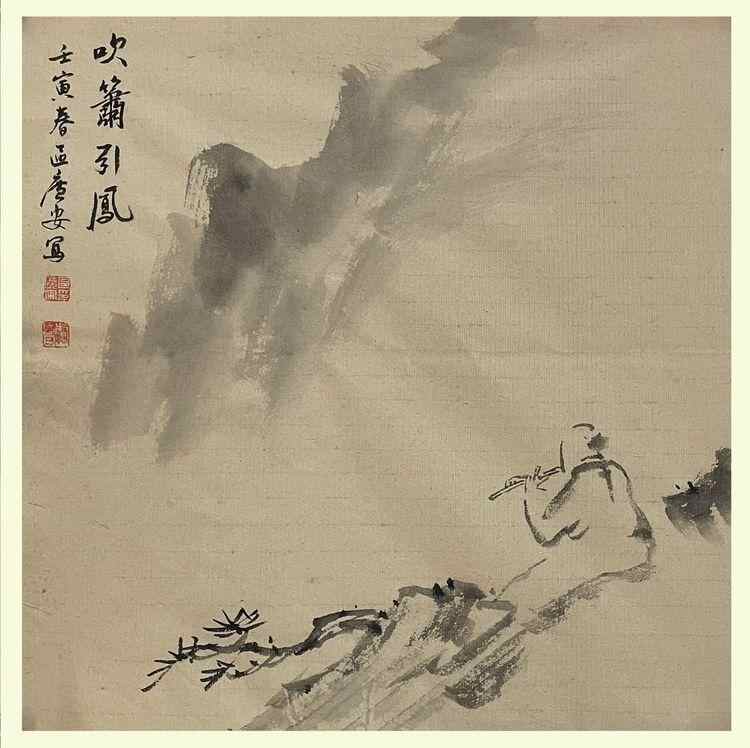 吹簫引鳳
壬寅春區廣安寫